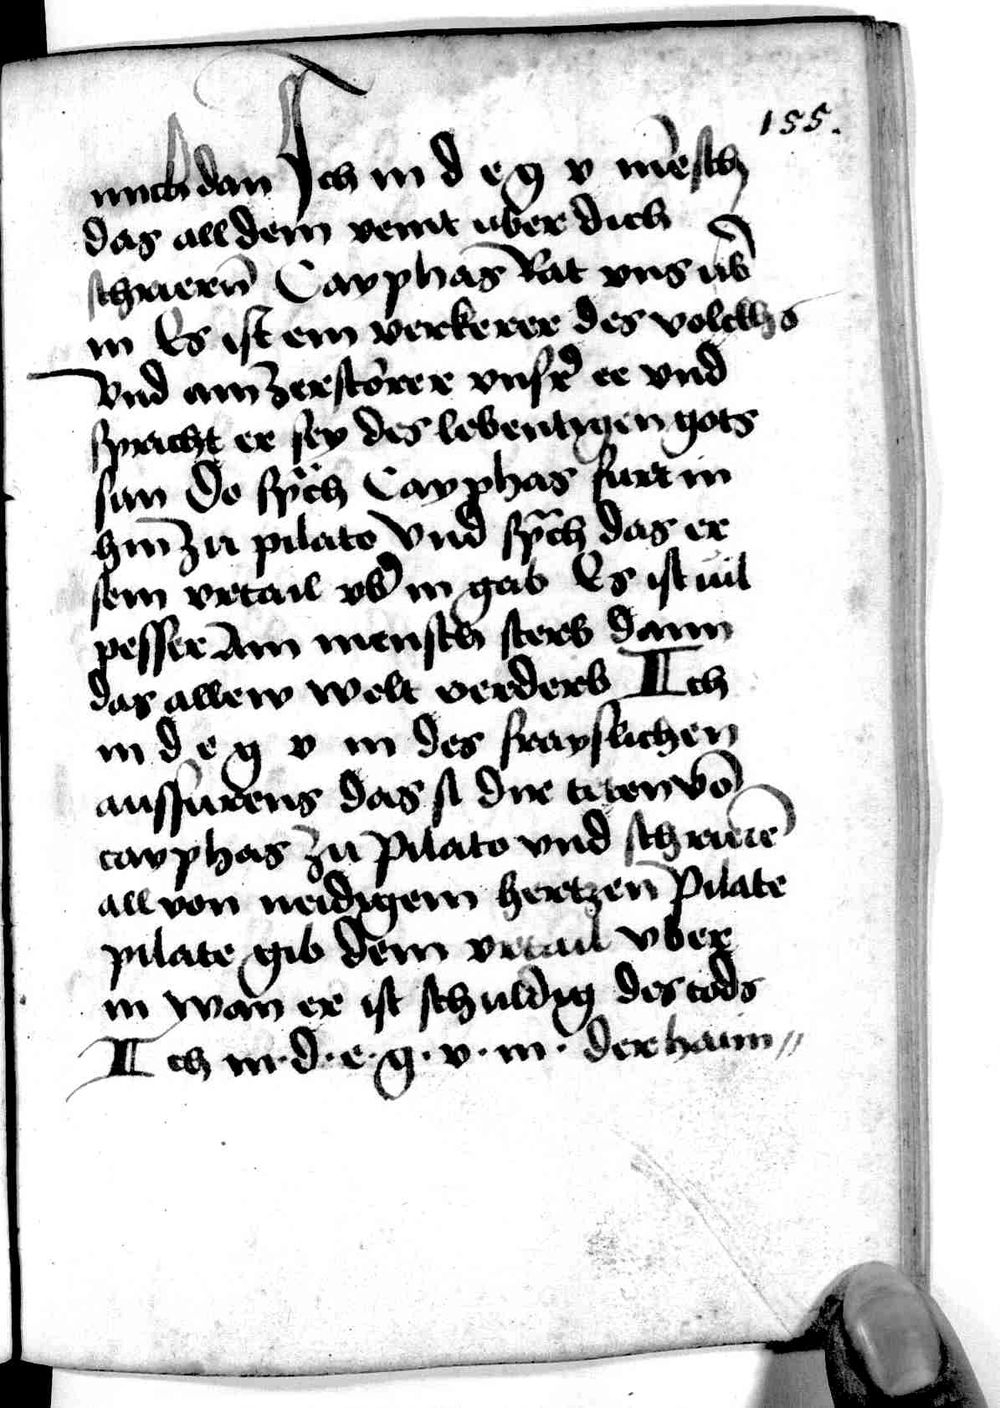 155.
mich dan Ich m d e g v mēsch
das all dem veint uber dich
schrierñ Cayphas Rat vns üb̄
in Es ist ein verkerer des volckhs
Vnd ain zerstörer vnsr̄ ee vnd
spricht er sey des lebentigen gots
sun Do sp̄ch Cayphas furt in
hin zu pilato Vnd sp̄ch das er
sein vrtail vb̄ in gab Es ist vil
pesser Ain mensch sterb dann
das allew welt verderb Ich
m d e g v m des frayslichen
ausfürens das si dir teten vō
cayphas zu Pilato vnd schrirē
all von neidigem hertzen Pilate
pilate gib dem vrtail vber
in wan er ist schuldig des tods
Ich m·d·e·g·v·m· der haim//